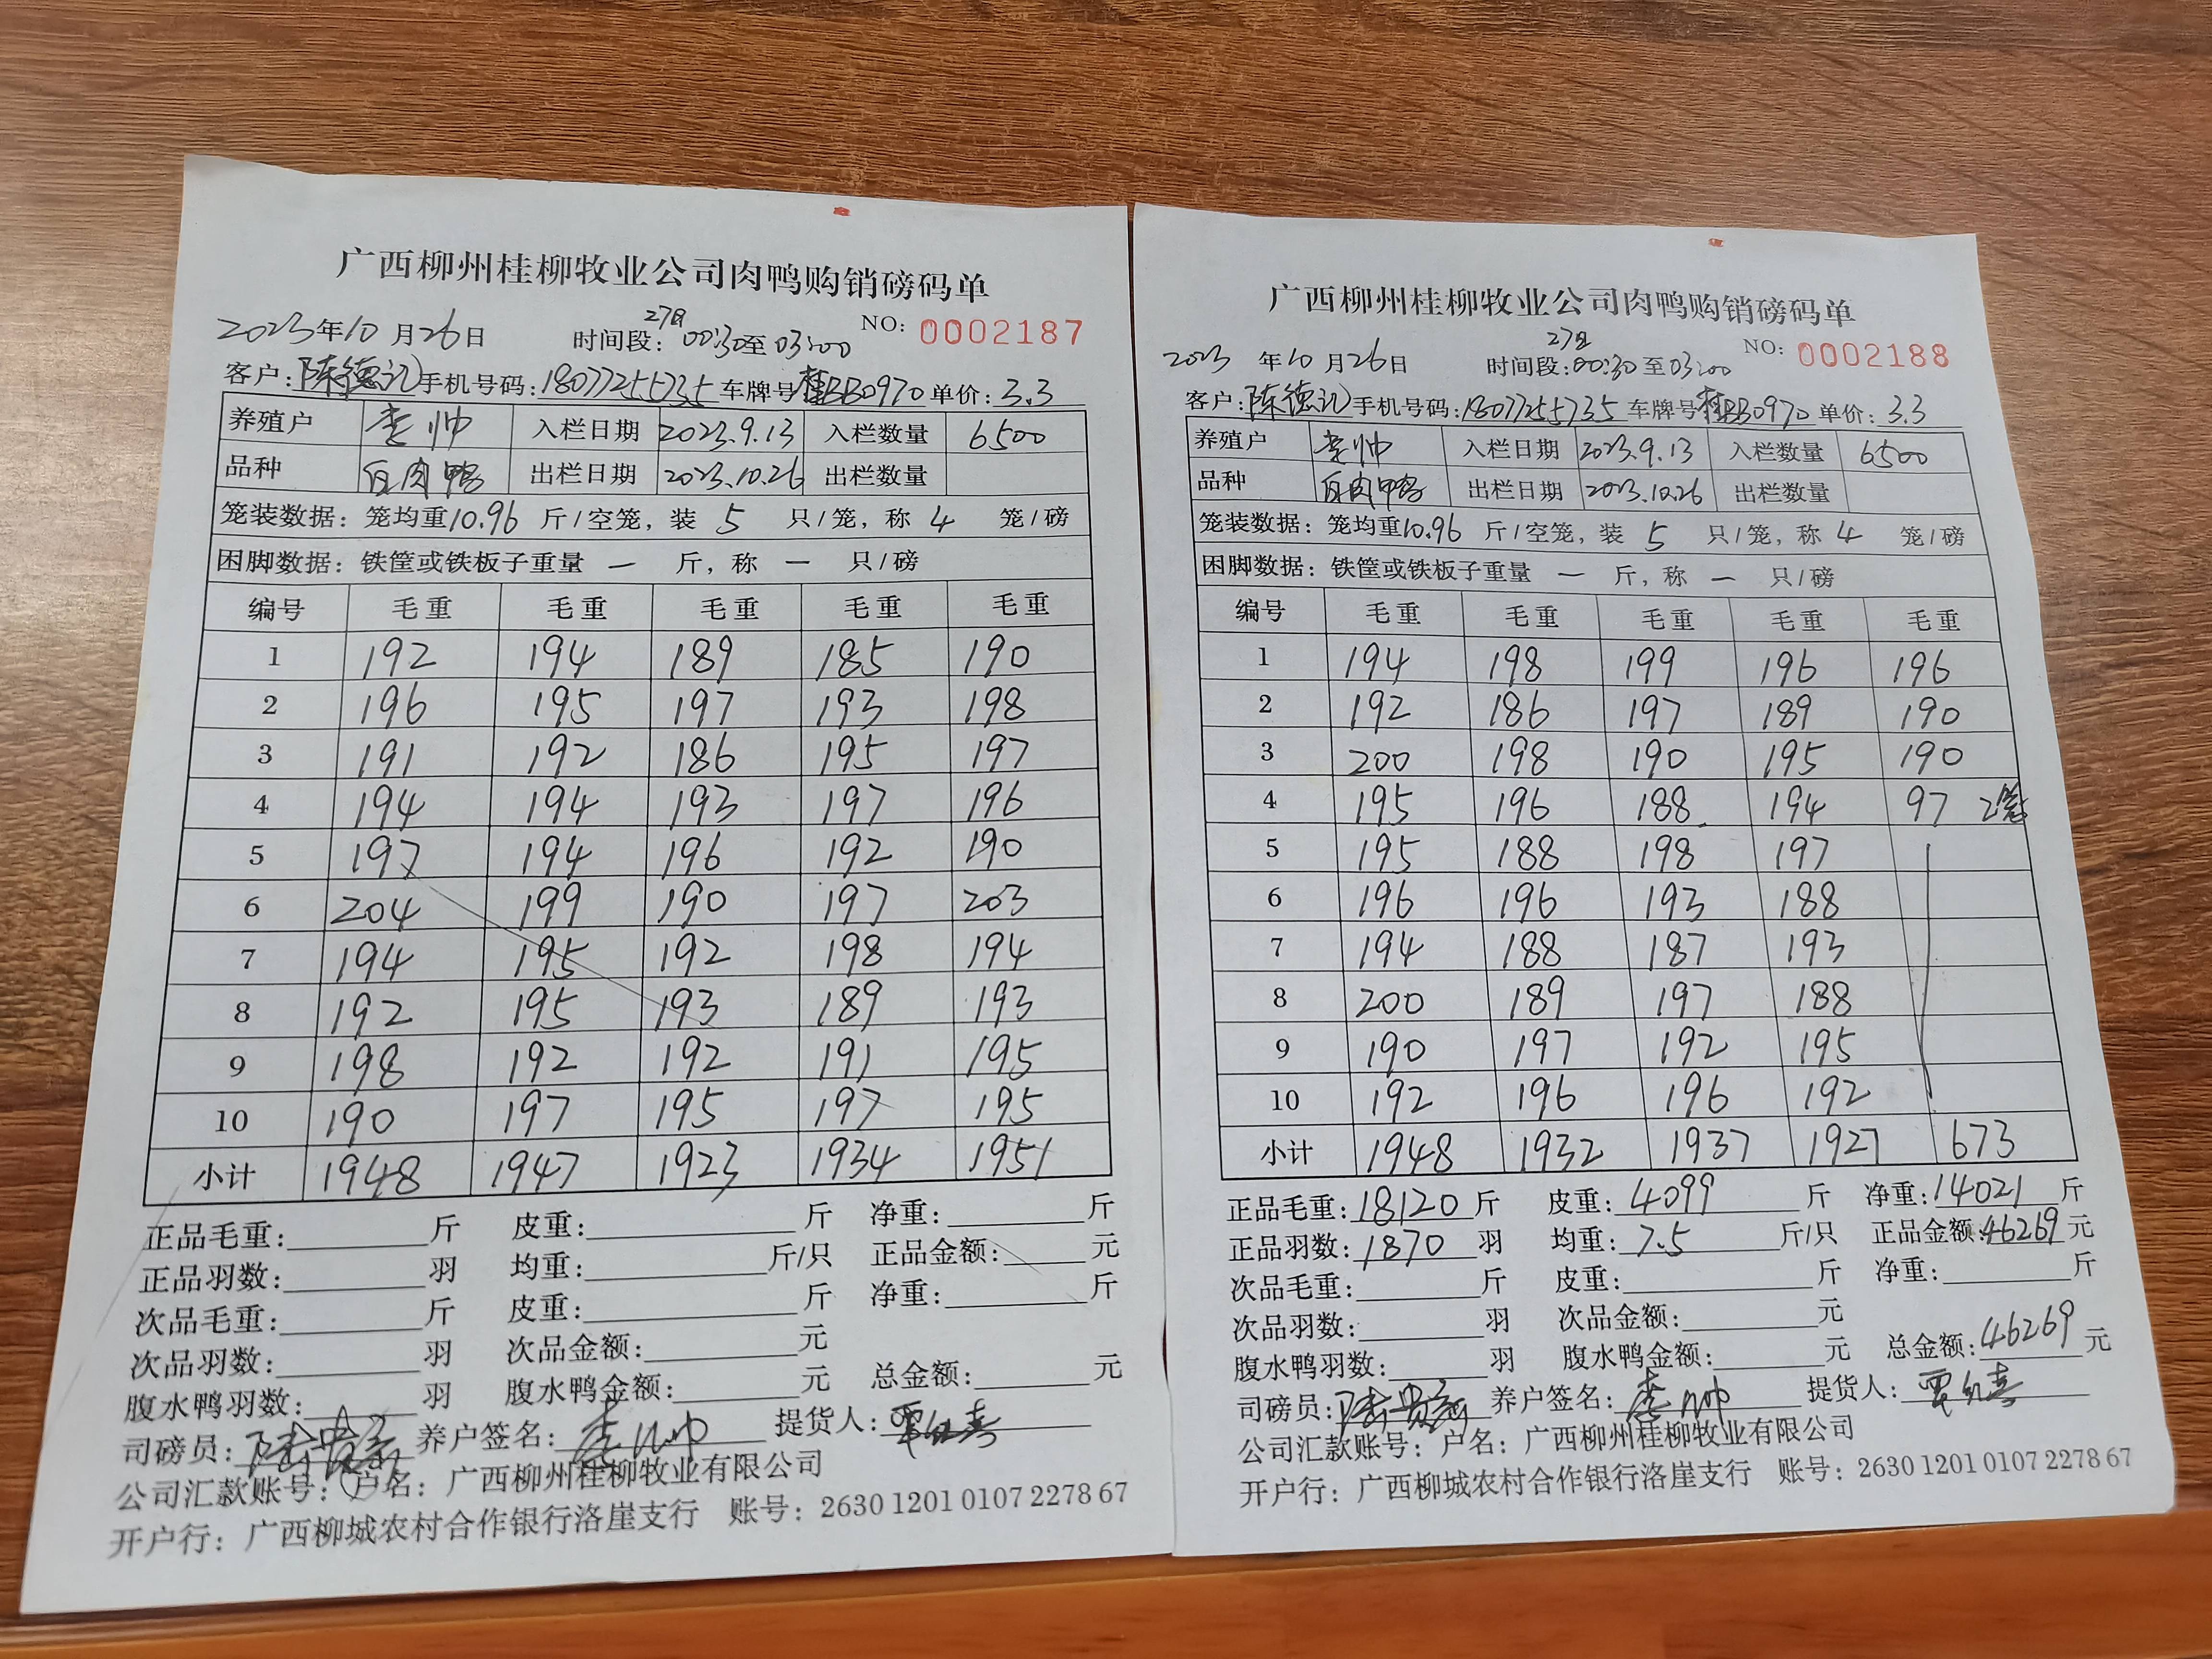 广西柳州桂柳牧业公司肉鸭购销磅码单
2023年10月26日 时间段：27日 00:30至03:00 NO：0002187
客户：陈德记 手机号码：18077255735 车牌号 桂BB0970 单价：3.3
养殖户 李帅 入栏日期 2023.9.13 入栏数量 6500
品种 白肉鸭 出栏日期 2023.10.26 出栏数量
笼装数据：笼均重10.96 斤/空笼，装 5 只/笼，称 4 笼/磅
困脚数据：铁筐或铁板子重量 一 斤，称 一 只/磅
编号 毛重 毛重 毛重 毛重 毛重
1 192 194 189 185 190
2 196 195 197 193 198
3 191 192 186 195 197
4 194 194 193 197 196
5 197 194 196 192 190
6 204 199 190 197 203
7 194 195 192 198 194
8 192 195 193 189 193
9 198 192 192 191 195
10 190 197 195 197 195
小计 1948 1947 1923 1934 1951
正品毛重： 斤 皮重： 斤 净重： 斤
正品羽数： 羽 均重： 斤/只 正品金额： 元
次品毛重： 斤 皮重： 斤 净重： 斤
次品羽数： 羽 次品金额： 元
腹水鸭羽数： 羽 腹水鸭金额： 元 总金额： 元
司磅员： 养户签名：李帅 提货人：
公司汇款账号：户名：广西柳州桂柳牧业有限公司
开户行：广西柳城农村合作银行洛崖支行 账号：2630 1201 0107 2278 67
广西柳州桂柳牧业公司肉鸭购销磅码单
2023 年10月26日 时间段：27日 00:30至03:00 NO：0002188
客户：陈德记 手机号码：18077255735 车牌号 桂BB0970 单价：3.3
养殖户 李帅 入栏日期 2023.9.13 入栏数量 6500
品种 白肉鸭 出栏日期 2023.10.26 出栏数量
笼装数据：笼均重10.96 斤/空笼，装 5 只/笼，称 4 笼/磅
困脚数据：铁筐或铁板子重量 一 斤，称 一 只/磅
编号 毛重 毛重 毛重 毛重 毛重
1 194 198 199 196 196
2 192 186 197 189 190
3 200 198 190 195 190
4 195 196 188 194 97 2笼
5 195 188 198 197
6 196 196 193 188
7 194 188 187 193
8 200 189 197 188
9 190 197 192 195
10 192 196 196 192
小计 1948 1932 1937 1927 673
正品毛重：18120 斤 皮重：4099 斤 净重：14021 斤
正品羽数：1870 羽 均重：7.5 斤/只 正品金额：46269 元
次品毛重： 斤 皮重： 斤 净重： 斤
次品羽数： 羽 次品金额： 元
腹水鸭羽数： 羽 腹水鸭金额： 元 总金额：46269 元
司磅员： 养户签名：李帅 提货人：
公司汇款账号：户名：广西柳州桂柳牧业有限公司
开户行：广西柳城农村合作银行洛崖支行 账号：2630 1201 0107 2278 67